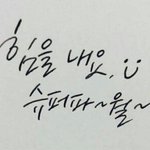 힘을 내요, ü
슈퍼파~월~